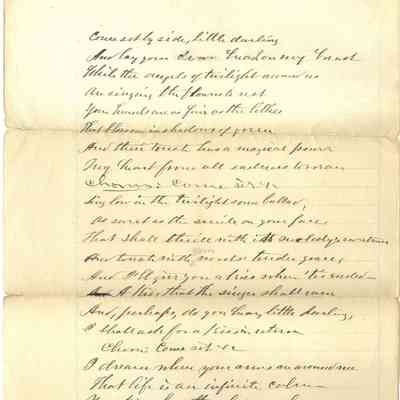 Come sit by side, little darling
And lay your brow head on my breast
While the angels of twilight around us
Are singing the flowers to rest
Your hands are as fair as the lillies
That blossom in shadows of green
And their touch has a magical power
My heart from all sadness to wean
Chorus: Come sit &c
Sing low in the twilight some ballad,
As sweet as the smile on your face
That shall thrill with its melody's
And touch with wonder tender grace,
And I'll give you a kiss when 'tis ended—
A kiss that the singer shall earn
And, perhaps, do you hear, little darling,
I shall ask for a kiss in return
Chorus: Come sit &c
I dream when your arms are around me
That life is an infinite calm—